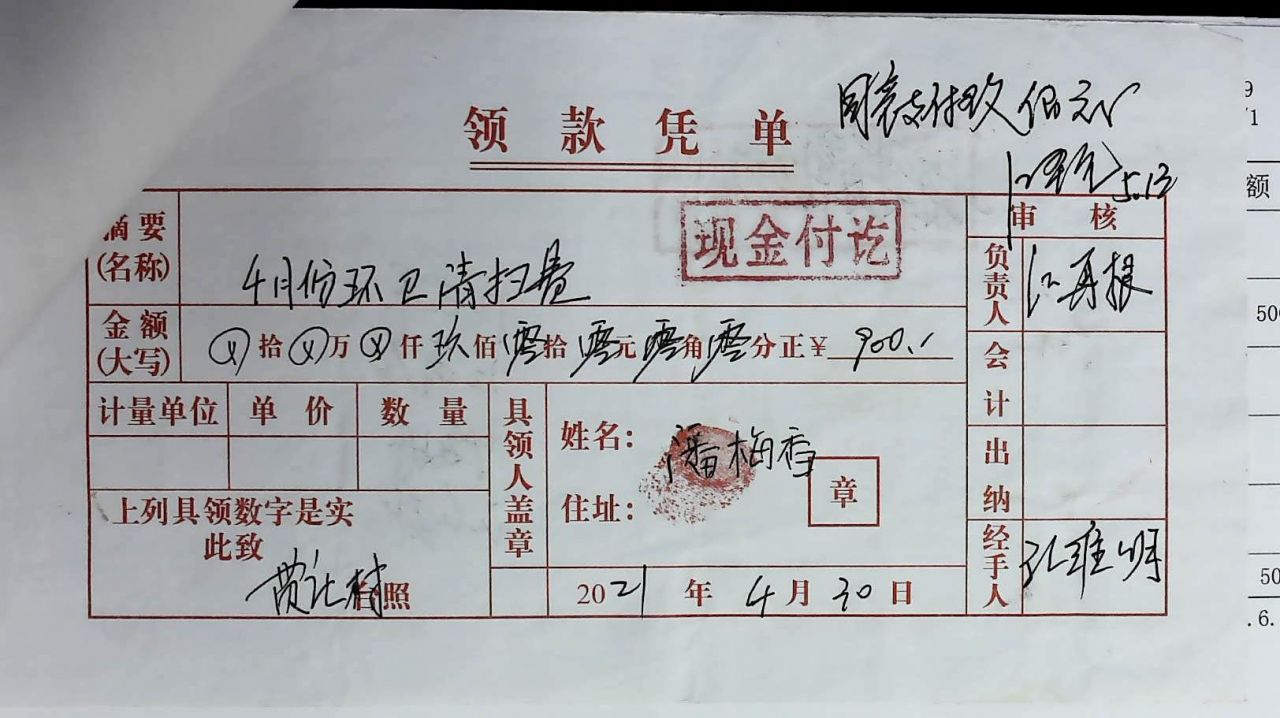 领款凭单
同意支付玖佰元
5.13
摘要(名称) 4月份环卫清扫费
现金付讫
审核
金额(大写) ⊗拾⊗万⊗仟玖佰零拾零元零角零分正￥900.-
负责人 江再根
会计
计量单位 单价 数量
具领人盖章
姓名：潘梅香
住址：
章
出纳
上列具领数字是实
此致
台照
2021年4月30日
经手人
额